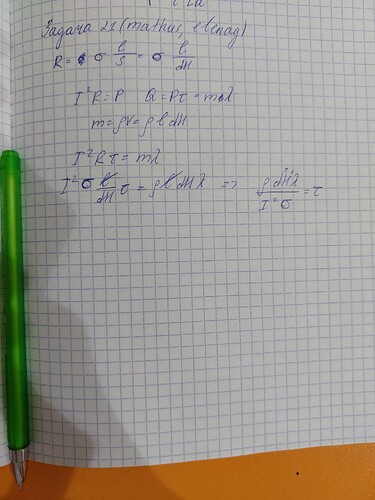 Задача 21 (mathus, евенад)
R = σ l/S = σ l/dH
I²R = P Q = Pτ = mλ
m = ρV = ρ l dH
I²Rτ = mλ
I²σ l/dH τ = ρ l dH λ => ρ d²H²λ/I²σ = τ